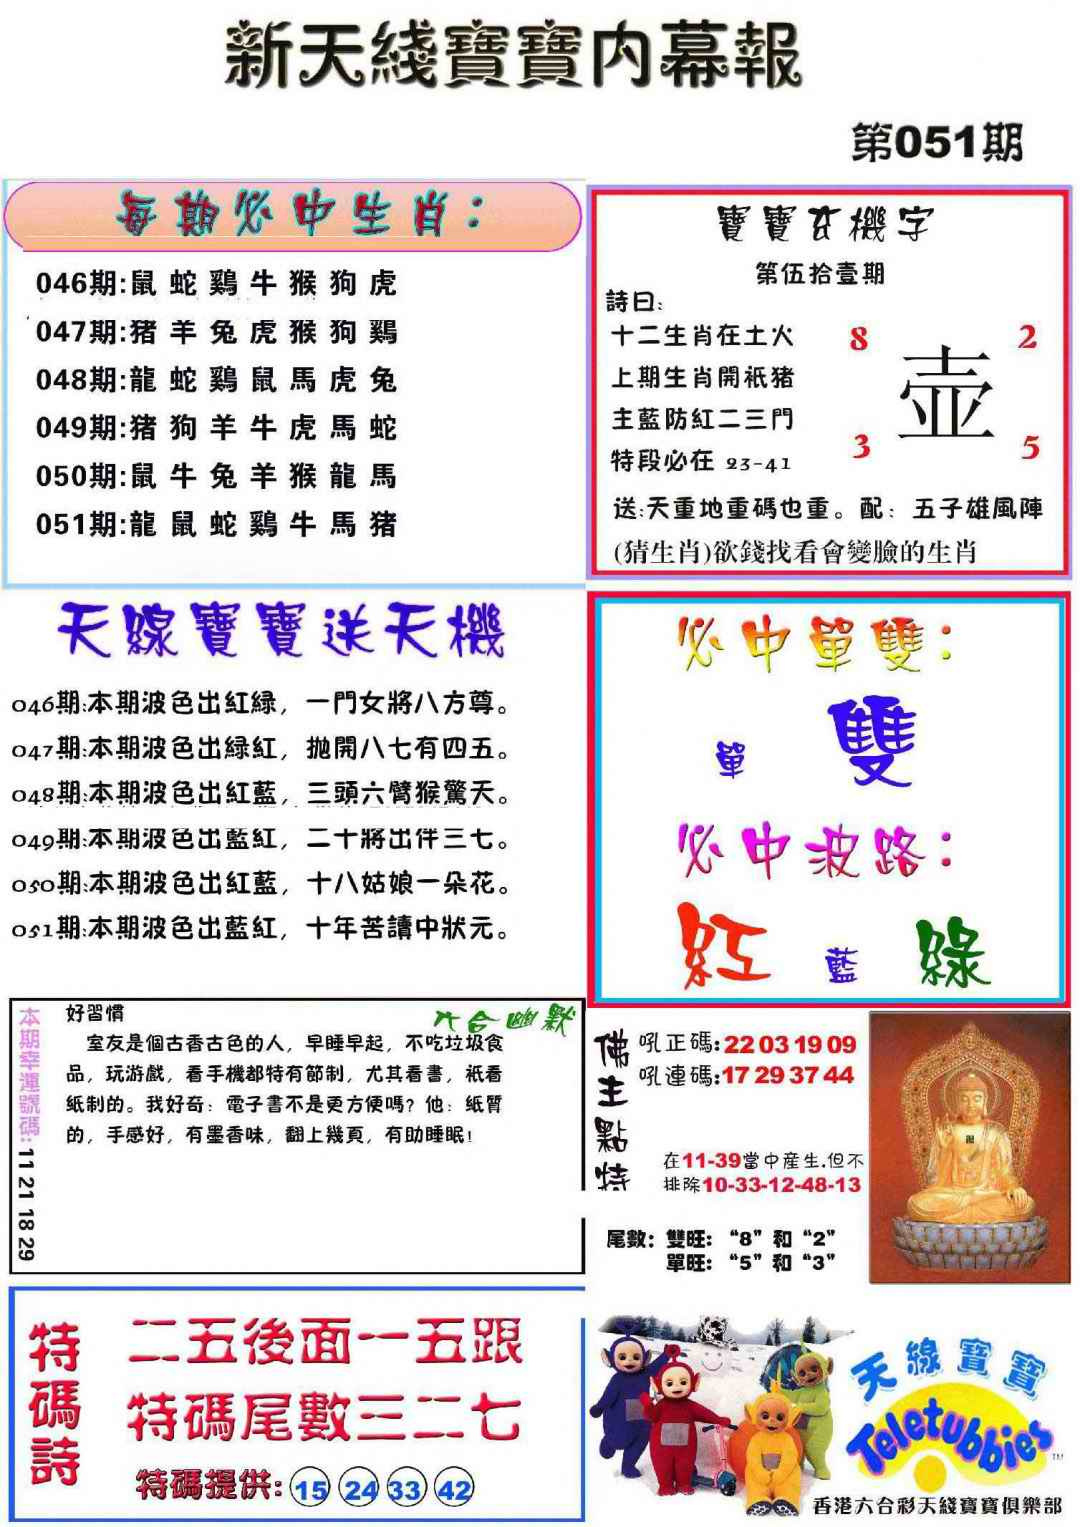 新天綫寶寶内幕報
第051期
每期必中生肖：
046期:鼠 蛇 鷄 牛 猴 狗 虎
047期:猪 羊 兔 虎 猴 狗 鷄
048期:龍 蛇 鷄 鼠 馬 虎 兔
049期:猪 狗 羊 牛 虎 馬 蛇
050期:鼠 牛 兔 羊 猴 龍 馬
051期:龍 鼠 蛇 鷄 牛 馬 猪
寶寶玄機字
第伍拾壹期
詩曰:
十二生肖在土火
上期生肖開衹猪
主藍防紅二三門
特段必在 23-41
8 2
壶
3 5
送:天重地重碼也重。配：五子雄風陣
(猜生肖)欲錢找看會變臉的生肖
天線寶寶送天機
046期:本期波色出紅緑，一門女將八方尊。
047期:本期波色出緑紅，抛開八七有四五。
048期:本期波色出紅藍，三頭六臂猴驚天。
049期:本期波色出藍紅，二十將出伴三七。
050期:本期波色出紅藍，十八姑娘一朵花。
051期:本期波色出藍紅，十年苦讀中狀元。
必中單雙：
單 雙
必中波路：
紅 藍 綠
本期幸運號碼:11 21 18 29
六合幽默
好習慣
室友是個古香古色的人，早睡早起，不吃垃圾食
品，玩游戲，看手機都特有節制，尤其看書，衹看
紙制的。我好奇：電子書不是更方便嗎？他：紙質
的，手感好，有墨香味，翻上幾頁，有助睡眠！
佛主點特
吼正碼:22 03 19 09
吼連碼:17 29 37 44
在11-39當中産生.但不
排除10-33-12-48-13
尾數：雙旺：“8”和“2”
單旺：“5”和“3”
特碼詩
二五後面一五跟
特碼尾數三二七
特碼提供: 15 24 33 42
天線寶寶
Teletubbies
TM
香港六合彩天綫寶寶俱樂部